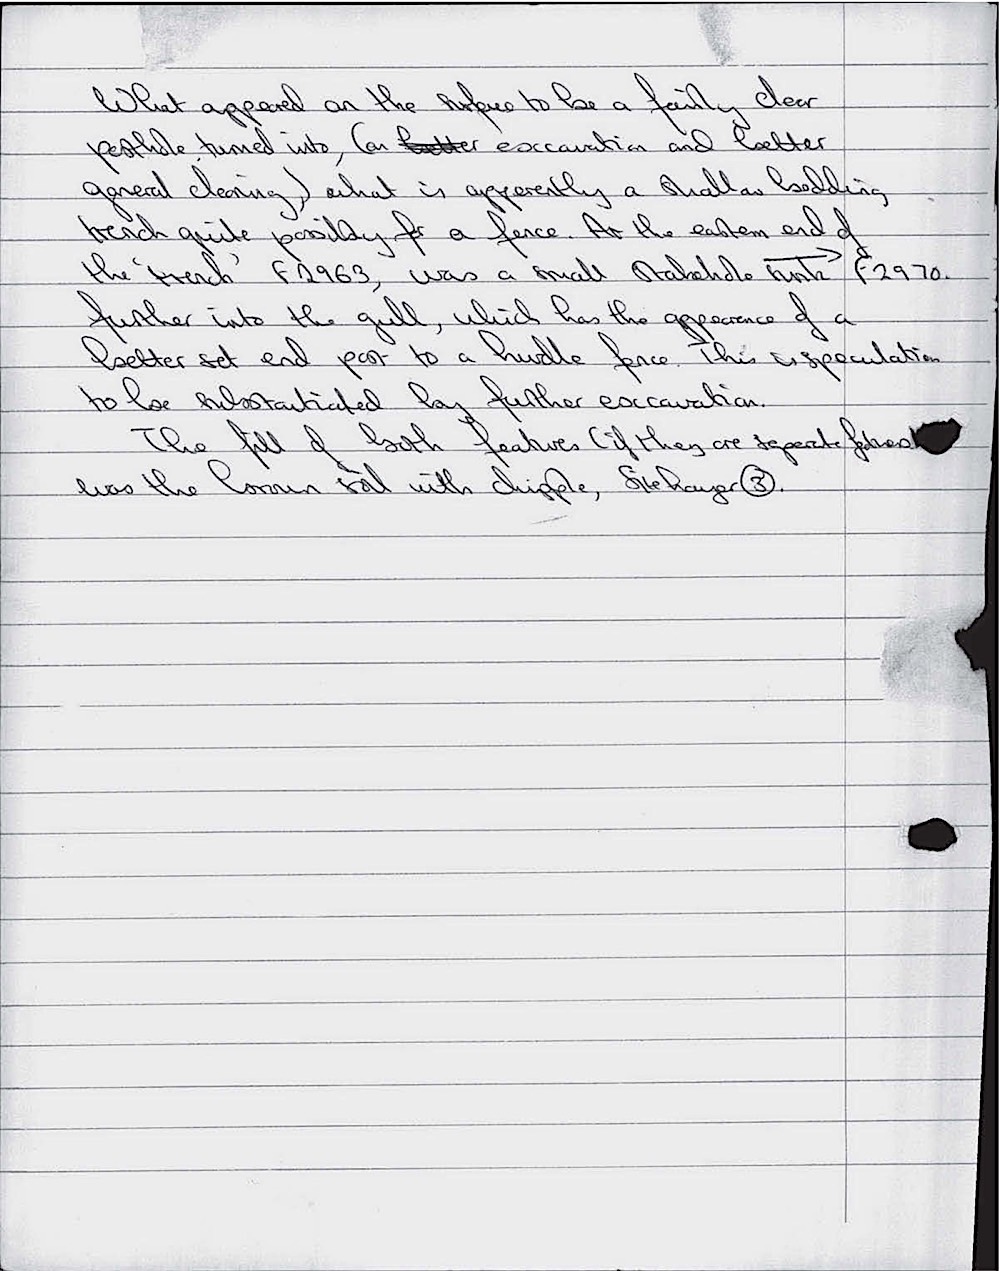 What appeared on the surface to be a fairly clear
posthole turned into, (on better excavation and better
general cleaning) what is apparently a shallow bedding
trench quite possibly for a fence. At the eastern end of
the 'trench' F2963, was a small stakehole sunk F2970.
further into the gull, which has the appearence of a
better set end post to a hurdle fence. This is speculation
to be substantiated by further excavation.
The fill of both features (if they are separate features)
was the brown soil with chipple, Site hanger ③.